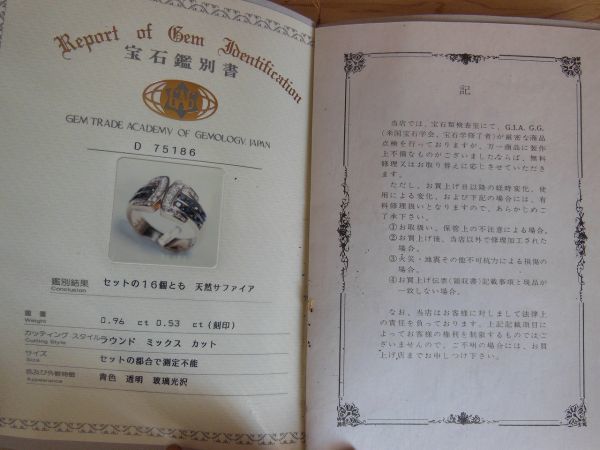 Report of Gem Identification
宝石鑑別書
GAG
GEM TRADE ACADEMY OF GEMOLOGY, JAPAN
D 75186
鑑別結果 セットの16個とも 天然サファイア
Conclusion
重量 0.96 ct 0.53 ct (刻印)
Weight
カッティング スタイル ラウンド ミックス カット
Cutting Style
サイズ セットの都合で測定不能
Size
色及び外観特徴 青色 透明 玻璃光沢
Appearance
記
当店では、宝石類検査室にて、G.I.A. G.G.
(米国宝石学会、宝石学修了者)が厳密な商品
点検を行っておりますが、万一商品に製作
上不備なものがございましたならば、無料
修理又はお取り替えに応じさせていただき
ます。
ただし、お買上げ日以降の経時変化、使
用による変化、および下記の場合には、有
料修理扱いとなりますので、あらかじめご
了承下さい。
①お取扱い、保管上の不注意による場合。
②お買上げ後、当店以外で修理加工された
場合。
③火災・地震その他不可抗力による損傷の
場合。
④お買上げ伝票(領収書)記載事項と現品が
一致しない場合。
なお、当店はお客様に対しまして法律上
の責任を負っております。上記記載項目に
よってお客様の権利を制限するものではご
ざいませんので、ご不明の場合には、お買
上げ店までお申しつけ下さい。